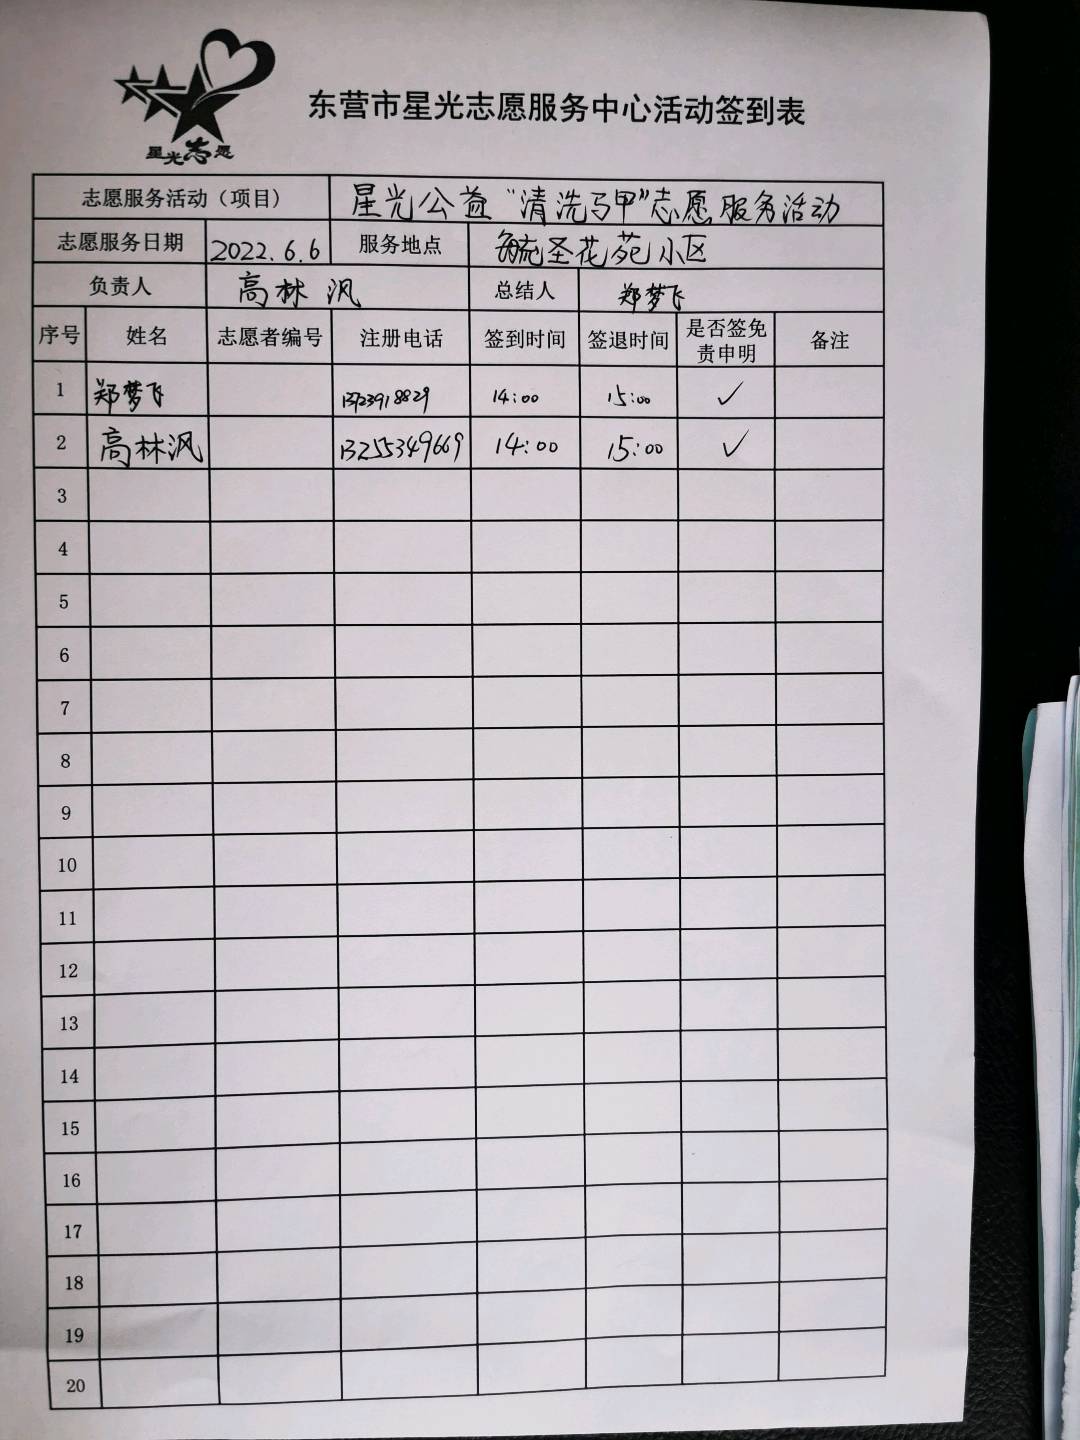 星光志愿
东营市星光志愿服务中心活动签到表
志愿服务活动（项目） 星光公益“清洗马甲”志愿服务活动
志愿服务日期 2022.6.6 服务地点 毓圣花苑小区
负责人 高林沨 总结人 郑梦飞
序号 姓名 志愿者编号 注册电话 签到时间 签退时间 是否签免责申明 备注
1 郑梦飞 14:00 15:00 ✓
2 高林沨 13255349669 14:00 15:00 ✓
3
4
5
6
7
8
9
10
11
12
13
14
15
16
17
18
19
20